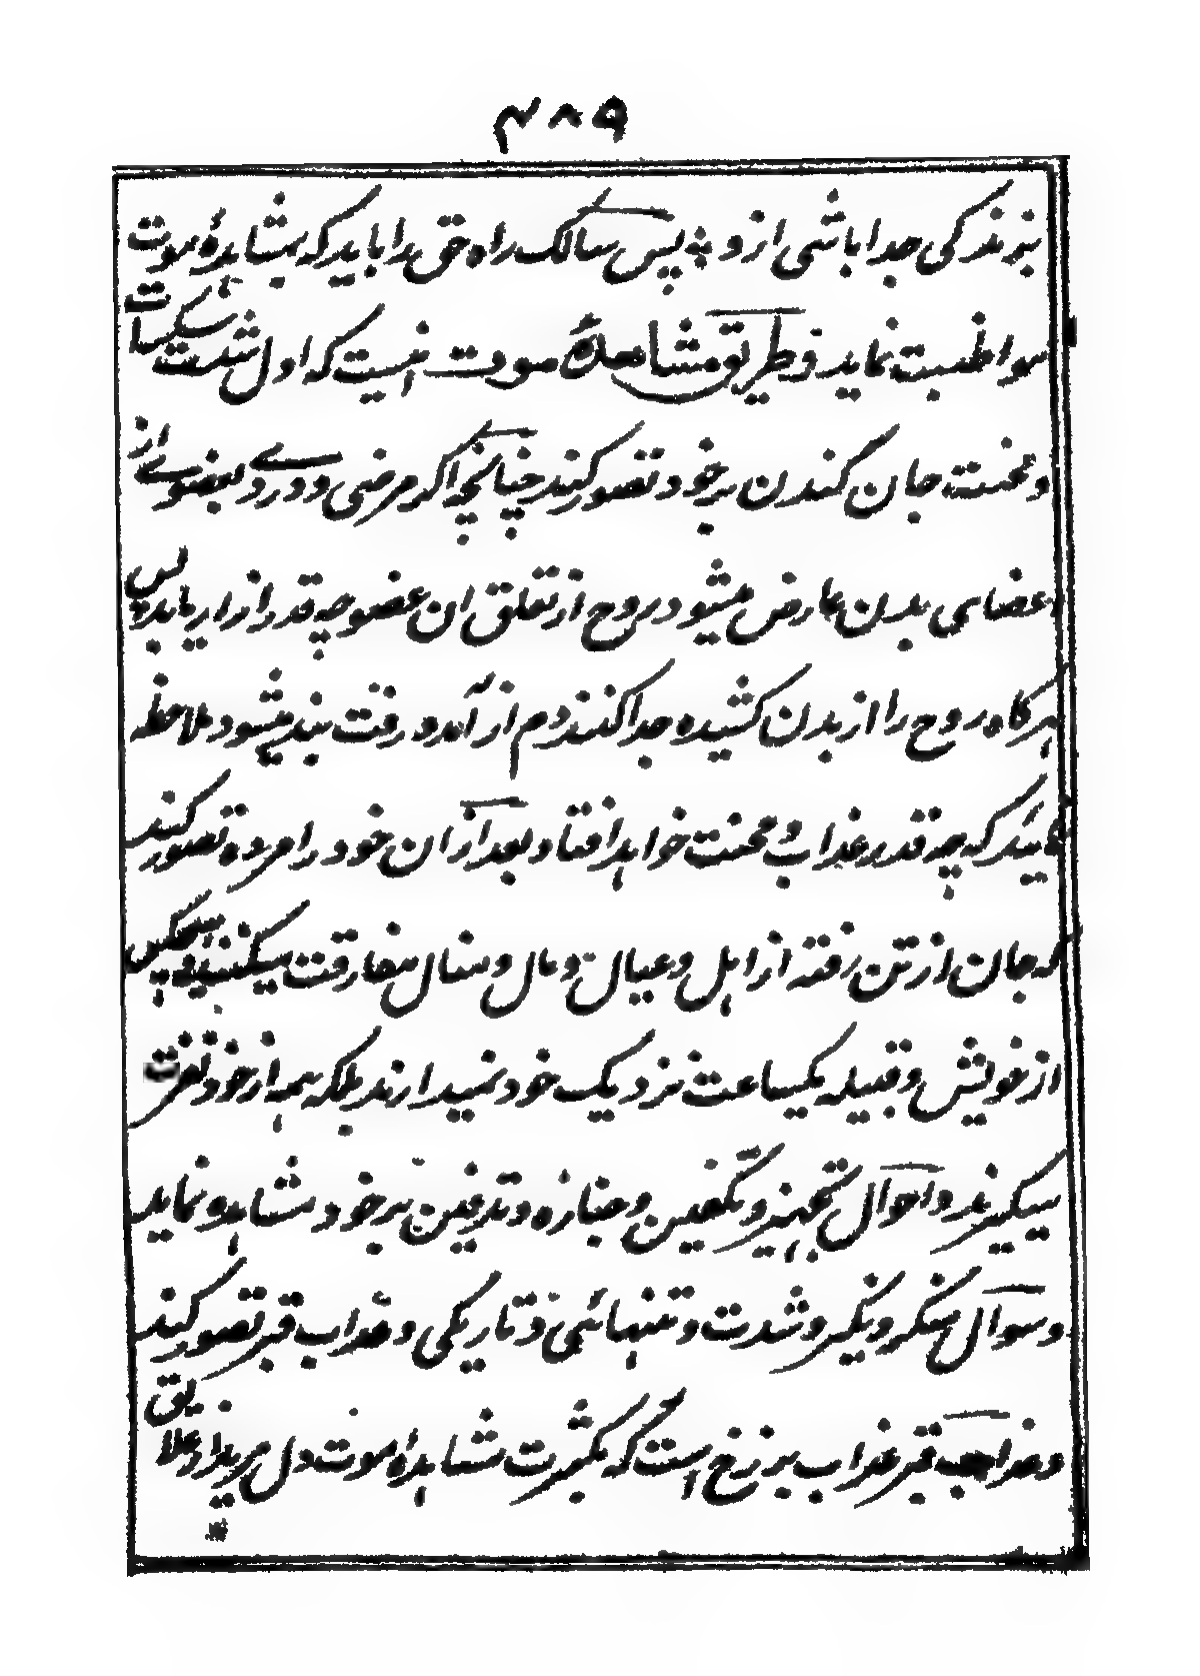 ۴۸۹
بزندگی جدا باشی ازو ؞ پس سالک راه حق را باید که بمشاهدهٔ موت
مواظبت نماید و طریق مشاهدهٔ موت اینست که اول شدت سکرات
و محنت جان کندن برخود تصور کند چنانچه اگر مرضی و دردے بعضوے از
اعضای بدن عارض میشود روح از تعلق ان عضو چه قدر ازار یابد پس
هرگاه روح را از بدن کشیده جدا کنند و دم از آمد و رفت بند میشود ملاحظه
نماید که چه قدر عذاب و محنت خواهد افتاد و بعد ازان خود را مرده تصور کند
که جان از تن رفته از اهل و عیال و مال و منال مفارقت میکند و هیچکس
از خویش و قبیله یکساعت نزدیک خود نمیدارند بلکه همه از خود نفرت
میگیرند و احوال تجهیز و تکفین و جنازه و تدفین برخود مشاهده نماید
و سوال منکر و نکیر و شدت و تنهائی و تاریکی و عذاب قبر تصور کند
و عذاب قبر عذاب برزخ است که بکثرت مشاهدهٔ موت دل مرید از علایق